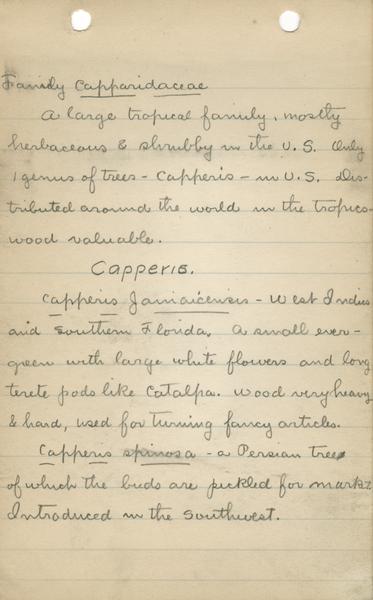 Family Capparidaceae
A large tropical family, mostly
herbaceous & shrubby in the U.S. Only
1 genus of trees - Capperis - in U.S. Dis-
tributed around the world in the tropics -
wood valuable.
Capperis.
Capperis Jamaicensis - West Indies
and Southern Florida. A small ever-
green with large white flowers and long
terete pods like Catalpa. Wood very heavy
& hard, used for turning fancy articles.
Capperis spinosa - a Persian tree
of which the buds are pickled for market.
Introduced in the Southwest.